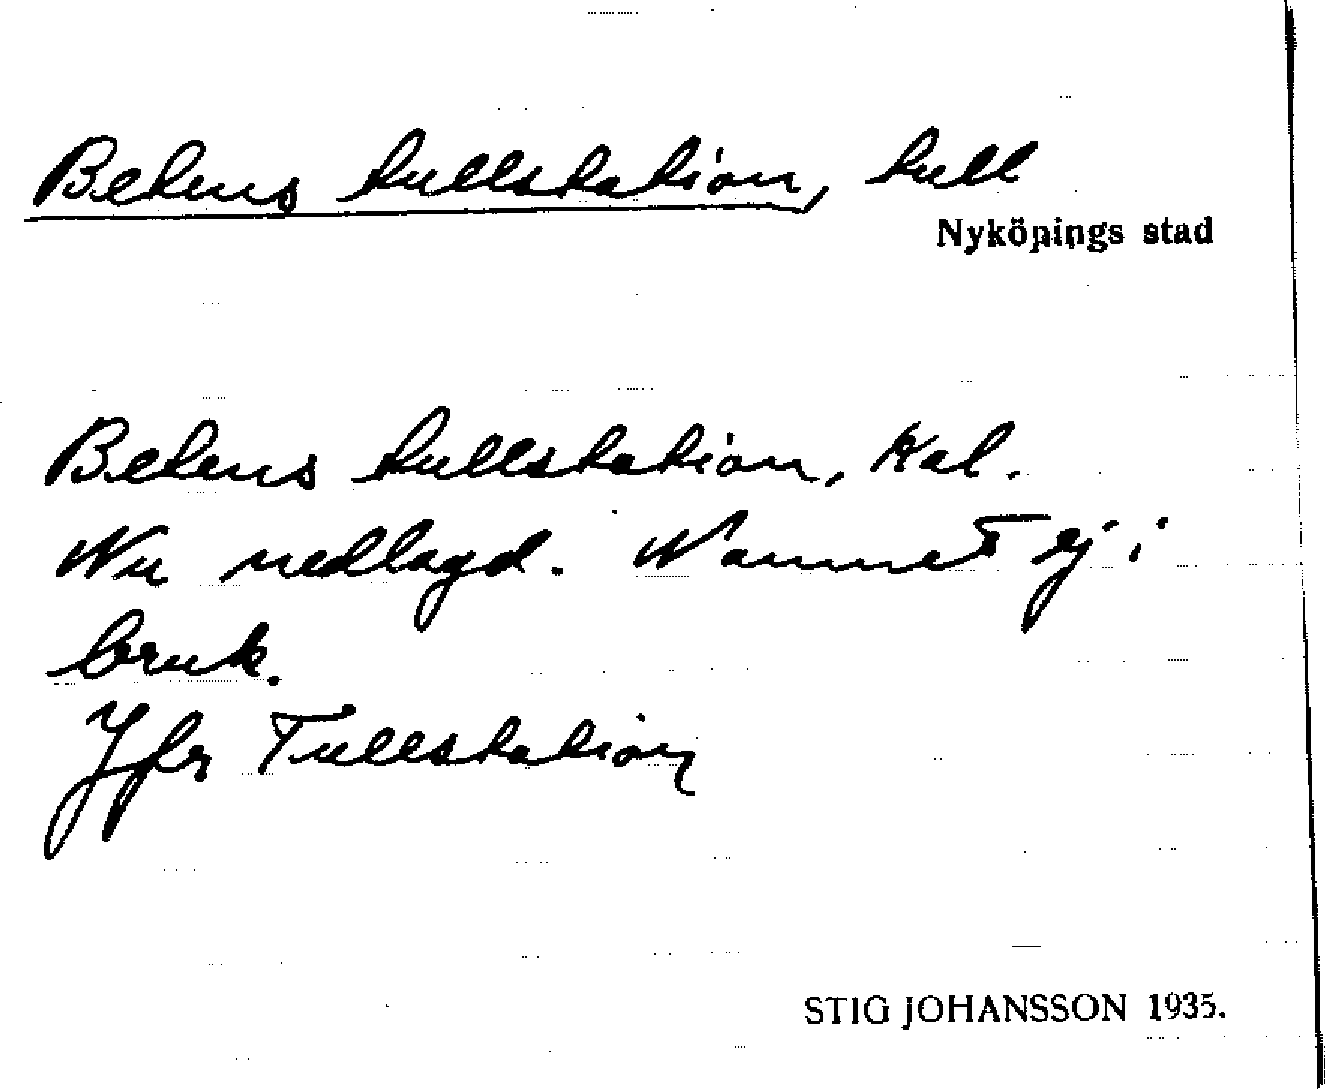 Betens tullstation, tull
Nyköpings stad
Betens tullstation, Kal.
Nu nedlagd. Namnet ej i
bruk.
Jfr Tullstation
STIG JOHANSSON 1935.